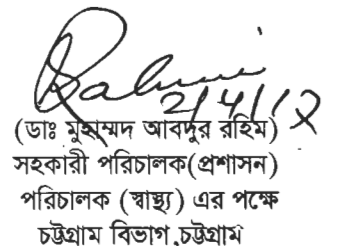 Rahim
2/4/12
(ডাঃ মুহাম্মদ আবদুর রহিম)
সহকারী পরিচালক(প্রশাসন)
পরিচালক (স্বাস্থ্য) এর পক্ষে
চট্টগ্রাম বিভাগ,চট্টগ্রাম